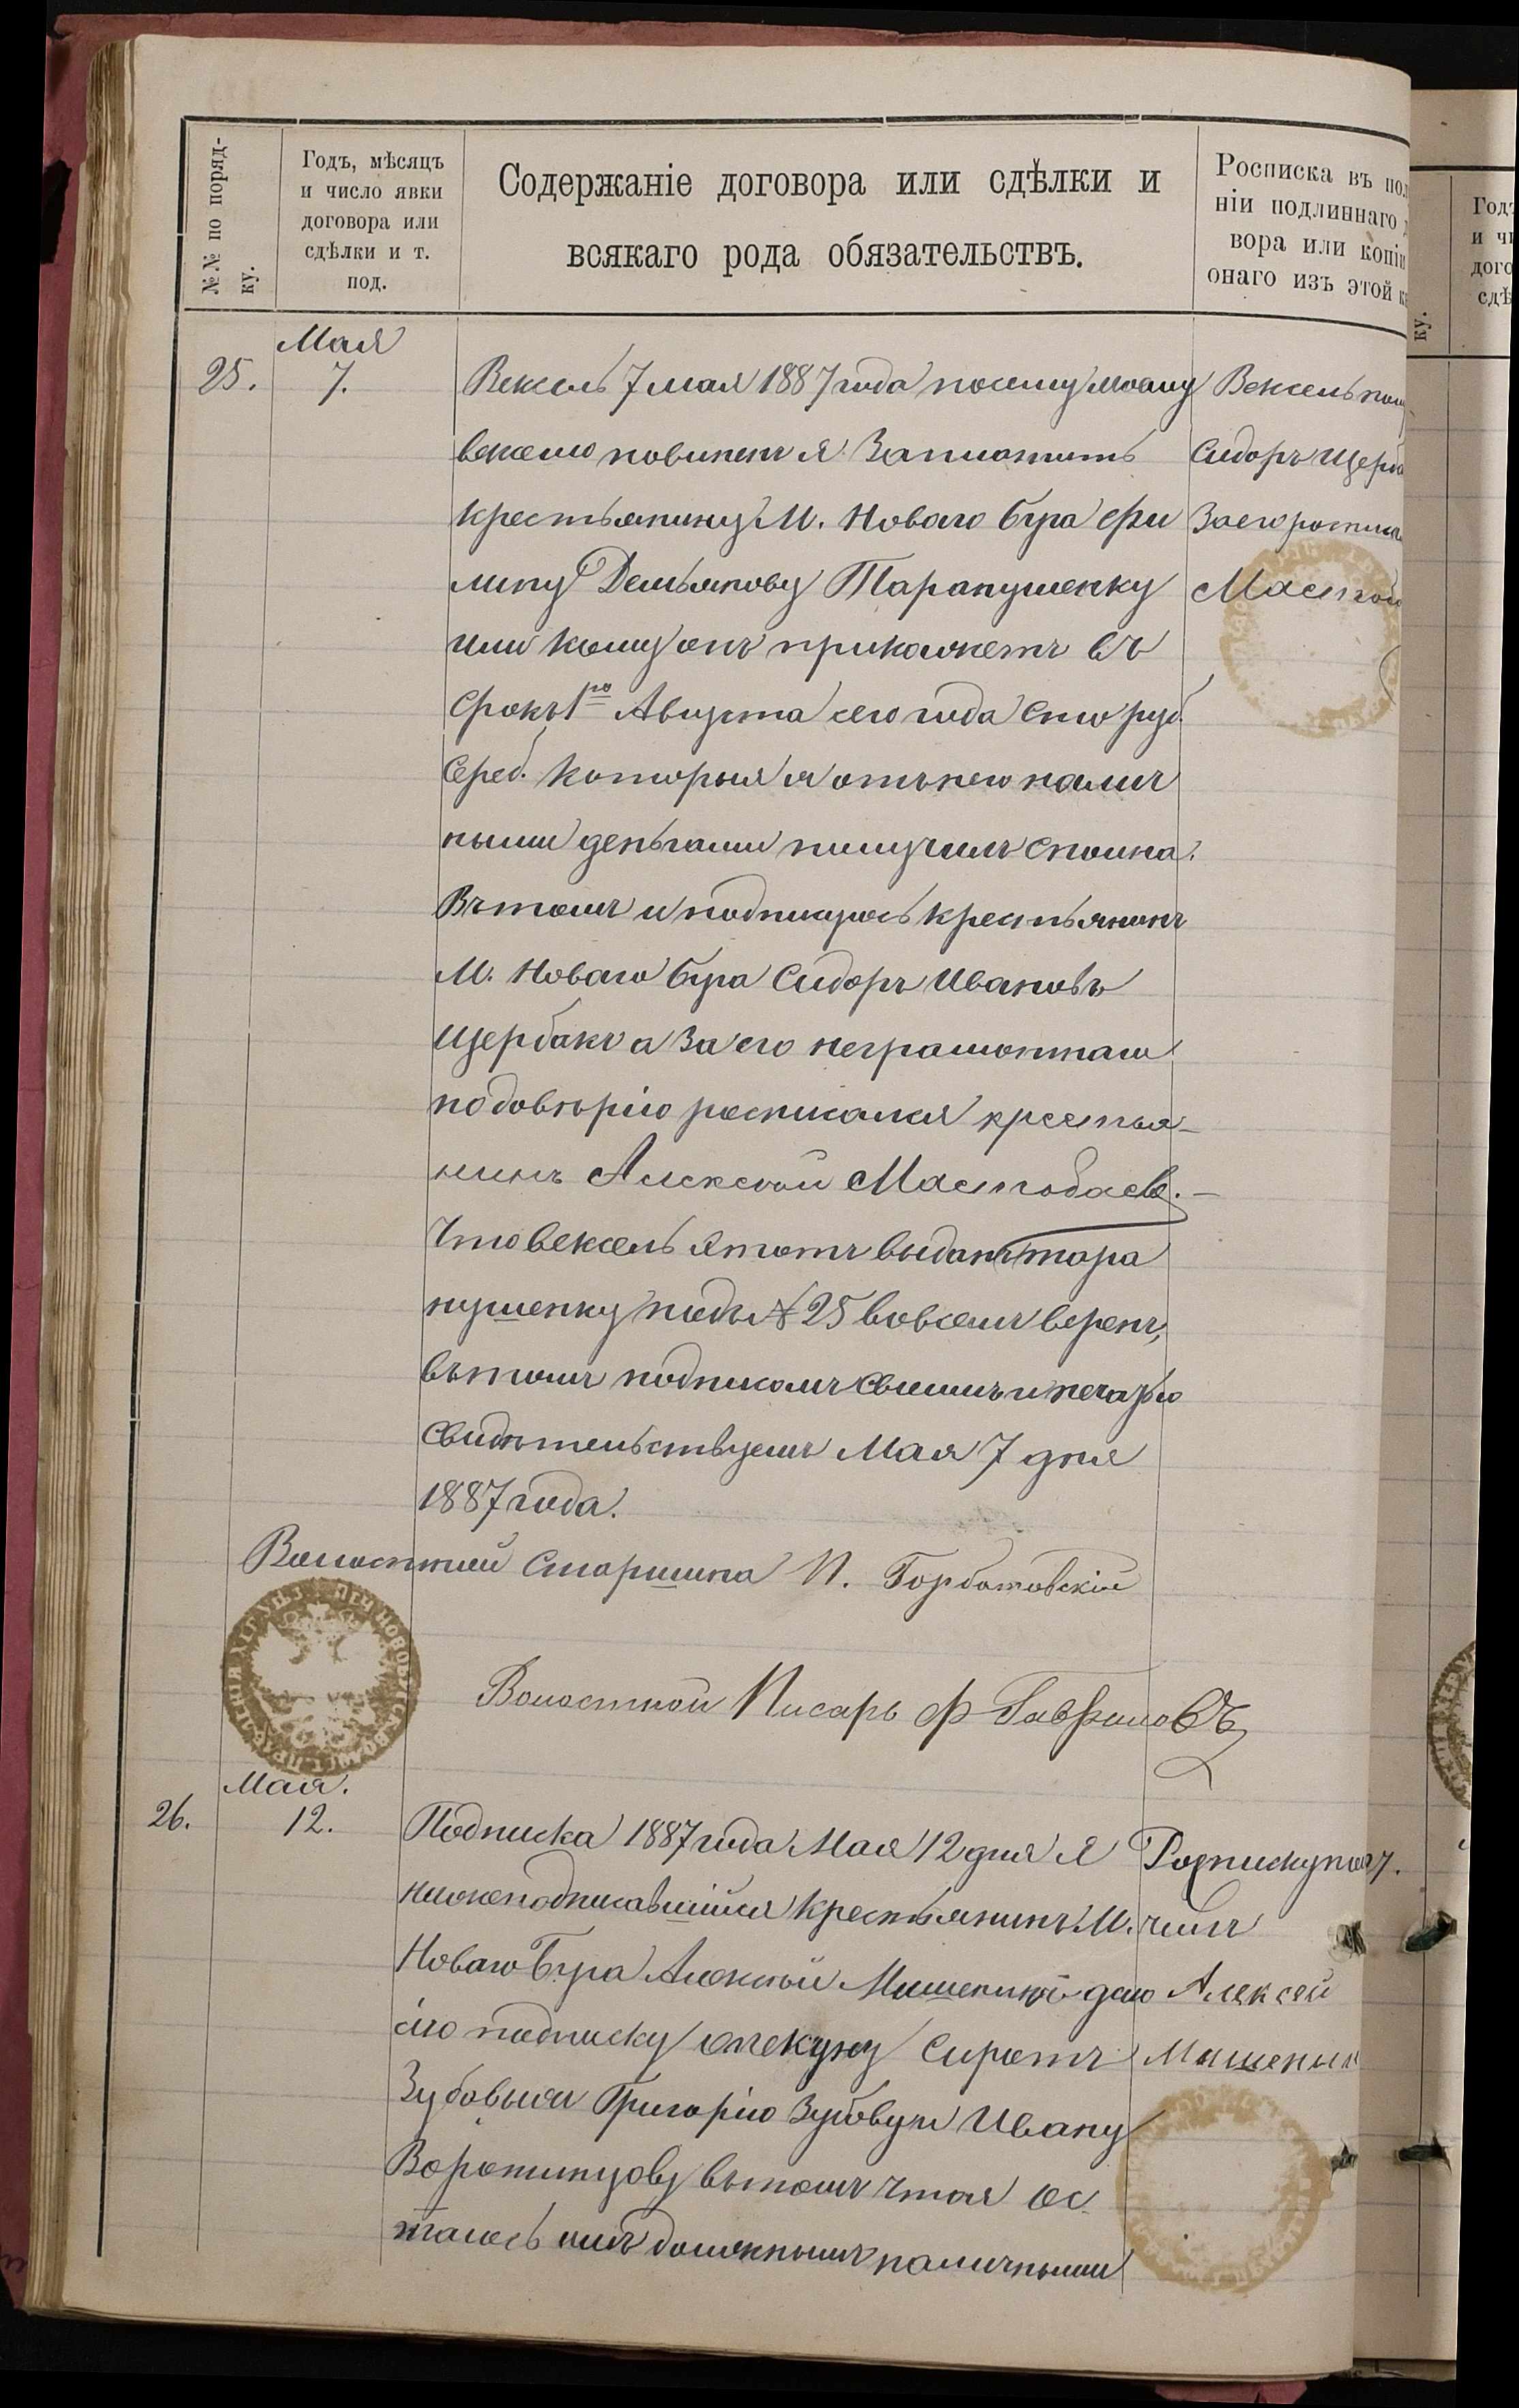 №№ по поряд-
ку.
Годъ, мѣсяцъ
и число явки
договора или
сдѣлки и т.
под.
Содержаніе договора или сдѣлки и
всякаго рода обязательствъ.
Росписка въ пол
ніи подлиннаго
вора или копіи
онаго изъ этой к
Годъ
и чи
дого
сдѣ
ку.
Мая
25.
7.
Вексель 7 мая 1887 года посему моему
векселю повиненъ я Заплатить
крестьянину М. Новаго Буга Фи
липу Демьянову Таранушенку
или кому онъ прикажетъ въ
срокъ 1го Августа сего года сто руб.
Сереб. которыя я отънего налич
ными деньгами получилъ сполна.
Вътомъ и подписуюсь крестьянинъ
М. Новаго Буга Сидоръ Ивановъ
Щербакъ а за его неграмотнаго
подовѣрію росписался крестья-
нинъ Алексѣй Мастобаевъ.-
Что вексель этотъ выданъ Тара
нушенку подъ № 25 вовсемъ веренъ,
вътомъ подписомъ своимъ и печатью
свидѣтельствуемъ Мая 7 дня
1887 года.
Волостной Старшина П. Горбатовскій
Волостной Писарь Ф Гавриловъ
Вексель пол
Сидоръ Щерба
Заего росписа
Мастоб
Мая.
26.
12.
Подписка 1887 года Мая 12 дня Я
нижеподписавшійся крестьянинъ М.
Новаго Буга Алексѣй Мишенинъ даю
сію подписку опекуну Сиротъ
Зубовыхъ Григорію Зубову и Ивану
Воротынцову вътомъ что я ос
таюсь имъ должнымъ наличными
Росписку полу.
чилъ
Алексей
Мишенин